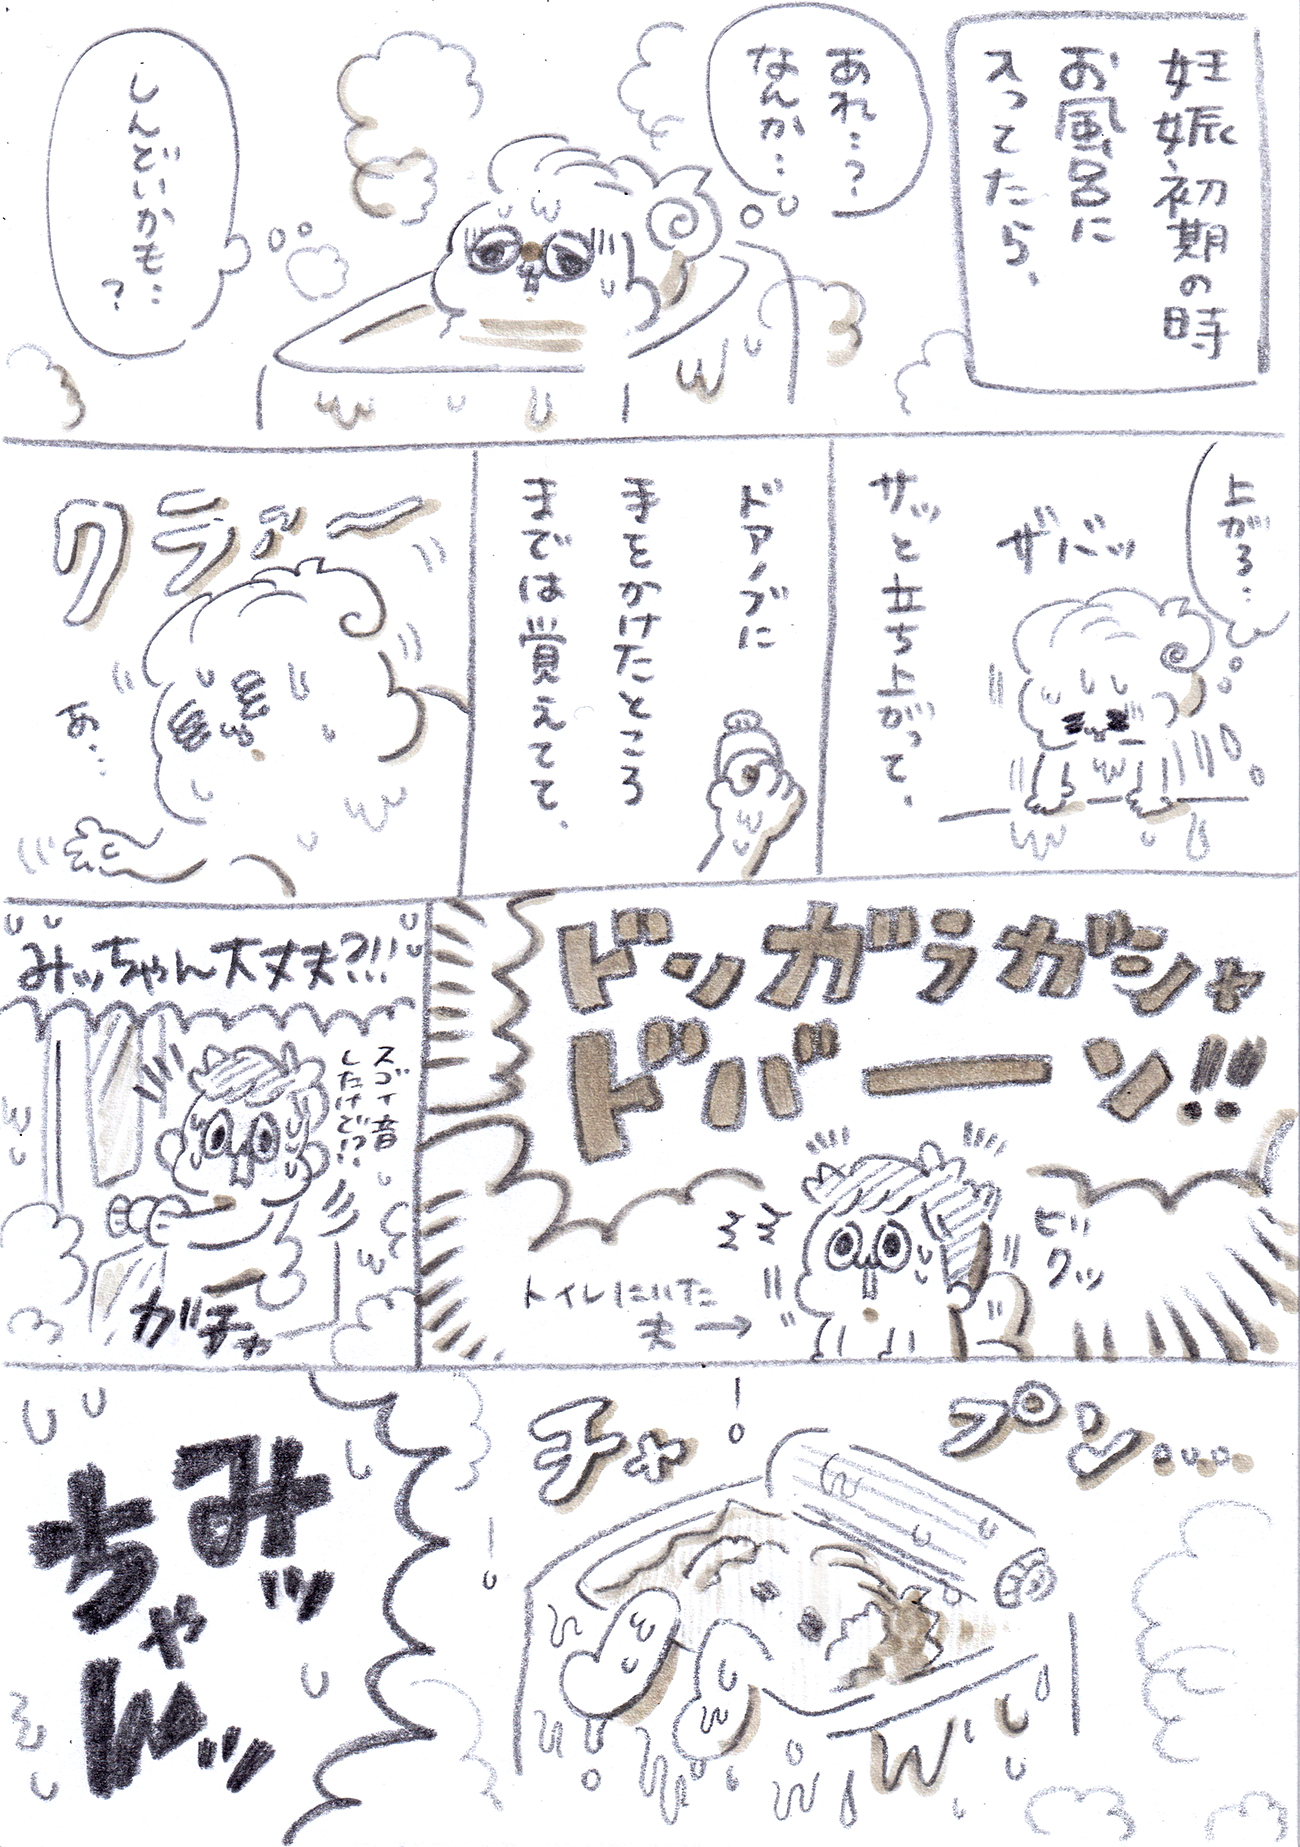 妊娠初期の時
お風呂に
入ってたら、
あれ…?
なんか…
しんどいかも…?
上がろ…
ザバッ
サッと立ち上がって、
ドアノブに
手をかけたところ
までは覚えてて、
クラァー
あ…
ドンガラガンシャ
ドバーーン!!
ビクッ
トイレにいた
夫→
みッちゃん大丈夫?!!
スゴイ音
したけど!?
ガチャ
プ〜ン……
チャ
みッ
ちゃんッ